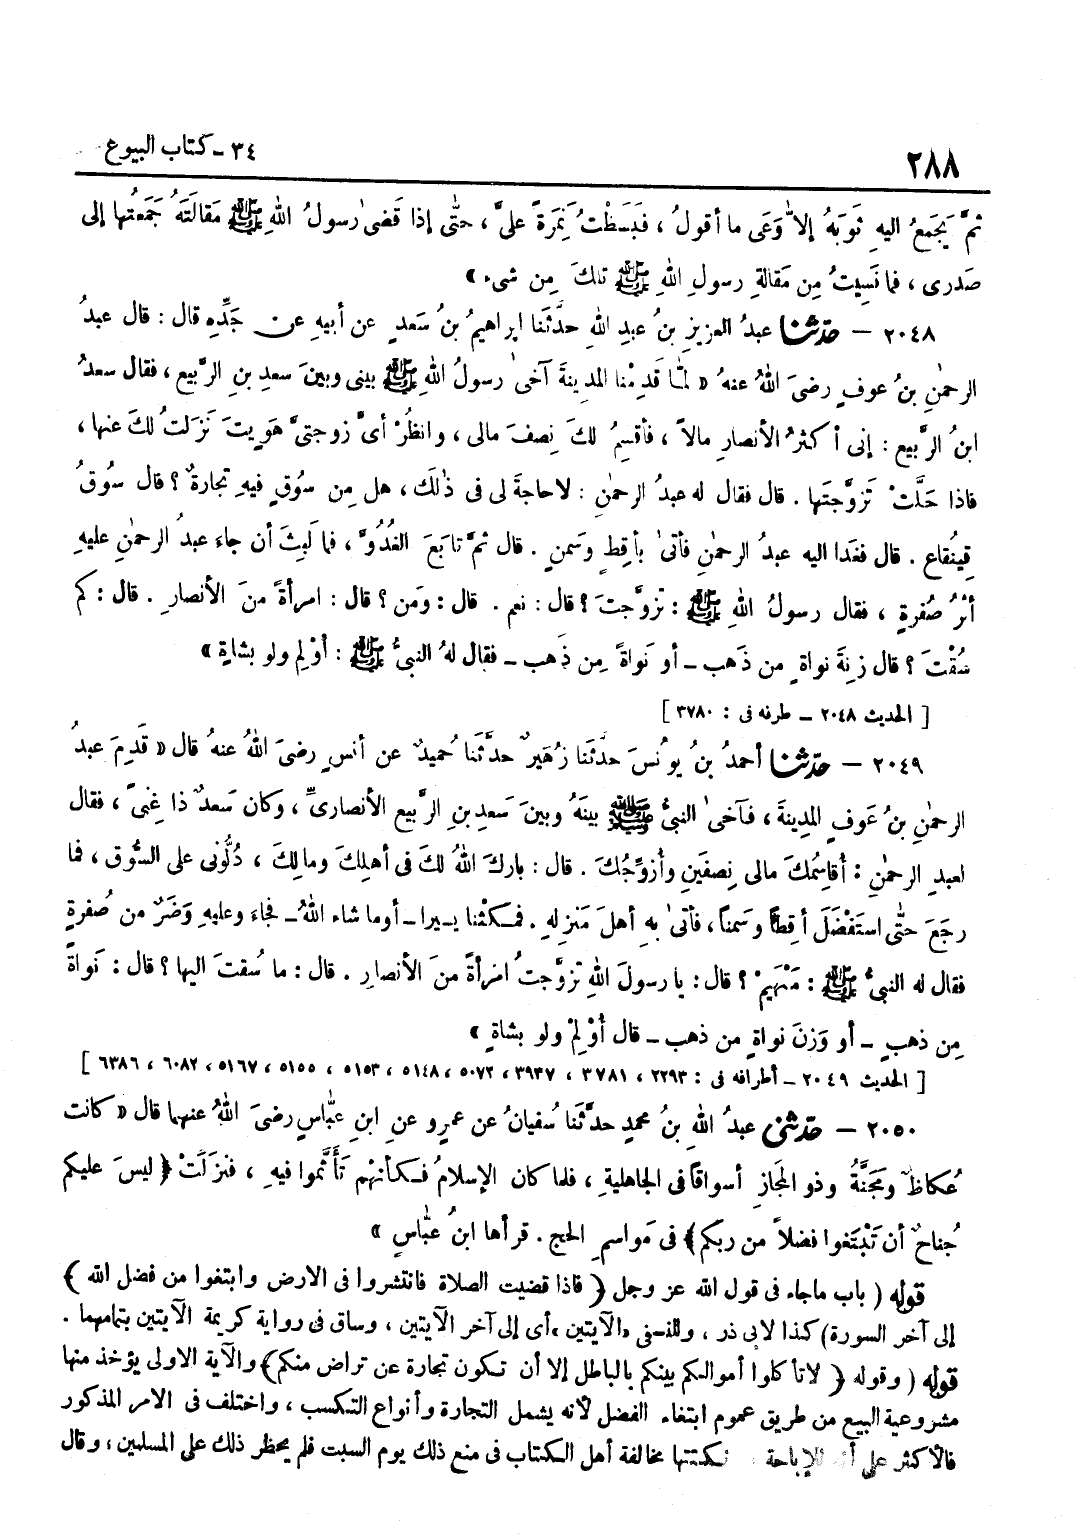 ٢٨٨
٣٤ - كتاب البيوع
ثمَّ يَجمَعُ اليهِ ثوبَهُ إلاَّ وَعَى ما أقولُ ، فَبَسَطْتُ نَمِرَةً علىَّ ، حتَّى إذا قَضىٰ رسولُ اللهِ ﷺ مَقالتَهُ جَمَعتُها إلى
صَدرى ، فما نَسِيتُ مِن مَقالةِ رسولِ اللهِ ﷺ تلكَ مِن شىء »
٢٠٤٨ — حدّثنا عبدُ العزيزِ بنُ عبدِ اللهِ حدَّثَنا ابراهيمُ بنُ سَعدٍ عن أبيهِ عن جَدِّهِ قال : قال عبدُ
الرحمٰنِ بنُ عوفٍ رضىَ اللهُ عنهُ « لمَّا قَدِمْنا المدينةَ آخىٰ رسولُ اللهِ ﷺ بينى وبينَ سعدِ بنِ الرَّبيع ، فقال سعدُ
ابنُ الرَّبيع : إنى أكثرُ الأنصارِ مالاً ، فأقسِمُ لكَ نِصفَ مالى ، وانظُرْ أىَّ زوجتىَّ هَوِيتَ نَزَلتُ لكَ عنها ،
فاذا حَلَّتْ تَزوَّجتَها . قال فقال له عبدُ الرحمٰنِ : لاحاجةَ لى فى ذٰلكَ ، هل مِن سُوقٍ فيهِ تجارةٌ ؟ قال سُوقُ
قَينُقاع . قال فغَدا اليه عبدُ الرحمٰنِ فأتىٰ بأقِطٍ وسَمنٍ . قال ثمَّ تابَعَ الغُدُوَّ ، فما لَبِثَ أن جاءَ عبدُ الرحمٰنِ عليهِ
أثرُ صُفرةٍ ، فقال رسولُ اللهِ ﷺ : تزوَّجتَ ؟ قال : نعم . قال : ومَن ؟ قال : امرأةً منَ الأنصارِ . قال : كم
سُقْتَ ؟ قال زِنةَ نواةٍ من ذَهبٍ – أو نَواةً مِن ذَهب – فقال لهُ النبىُّ ﷺ : أوْلِم ولو بشاةٍ »
[ الحديث ٢٠٤٨ – طرفه فى : ٣٧٨٠ ]
٢٠٤٩ — حدّثنا أحمدُ بنُ يونُسَ حدَّثَنا زهَيرٌ حدَّثَنا حُميدٌ عن أنسٍ رضىَ اللهُ عنهُ قال « قَدِمَ عبدُ
الرحمٰنِ بنُ عَوفٍ المدِينةَ ، فآخىٰ النبىُّ ﷺ بينَهُ وبينَ سَعدِ بنِ الرَّبيع الأنصارىِّ ، وكان سَعدٌ ذا غِنىً ، فقال
لعبدِ الرحمٰنِ : أقاسِمُكَ مالى نِصفَينِ وأُزوِّجُكَ . قال : باركَ اللهُ لكَ فى أهلِكَ ومالِكَ ، دُلُّونى على السُّوق ، فما
رجَعَ حتَّى استَفْضَلَ أقِطاً وسَمناً ، فأتىٰ به أهلَ مَنزِلهِ . فمكثْنا يسيرا – أو ما شاء اللهُ – فجاءَ وعليهِ وَضَرٌ من صُفرةٍ
فقال له النبىُّ ﷺ : مَهْيَمْ ؟ قال : يا رسولَ اللهِ تزوَّجتُ امرأةً منَ الأنصارِ . قال : ما سُقتَ اليها ؟ قال : نَواةً
مِن ذهبٍ – أو وَزنَ نواةٍ من ذهب – قال أوْلِمْ ولو بشاةٍ »
[ الحديث ٢٠٤٩ – أطرافه فى : ٢٢٩٣ ، ٣٧٨١ ، ٣٩٣٧ ، ٥٠٧٢ ، ٥١٤٨ ، ٥١٥٣ ، ٥١٥٥ ، ٥١٦٧ ، ٦٠٨٢ ، ٦٣٨٦ ]
٢٠٥٠ — حدّثنى عبدُ اللهِ بنُ محمدٍ حدَّثَنا سُفيانُ عن عمرٍو عنِ ابنِ عبّاسٍ رضىَ اللهُ عنهما قال « كانت
عُكاظٌ ومَجَنَّةُ وذو المَجازِ أسواقاً فى الجاهليةِ ، فلما كان الإسلامُ فكأنهْم تَأَثَّموا فيهِ ، فنزَلَتْ ﴿ ليسَ عليكم
جُناحٌ أن تَبْتَغوا فضلاً من ربكم﴾ فى مَواسمِ الحج . قرأها ابنُ عبَّاسٍ »
قوله ( باب ماجاء فى قول الله عز وجل ﴿ فاذا قضيت الصلاة فانتشروا فى الارض وابتغوا من فضل الله ﴾
إلى آخر السورة) كذا لابى ذر ، وللنسفى «الآيتين» أى إلى آخر الآيتين ، وساق فى رواية كريمة الآيتين بتمامهما .
قوله ( وقوله ﴿ لاتأكلوا أموالكم بينكم بالباطل إلا أن تكون تجارة عن تراض منكم﴾ والآية الاولى يؤخذ منها
مشروعية البيع من طريق عموم ابتغاء الفضل لأنه يشمل التجارة وأنواع التكسب ، واختلف فى الامر المذكور
فالأكثر على أنه للإباحة ونكتتها مخالفة أهل الكتاب فى منع ذلك يوم السبت فلم يحظر ذلك على المسلمين ، وقال